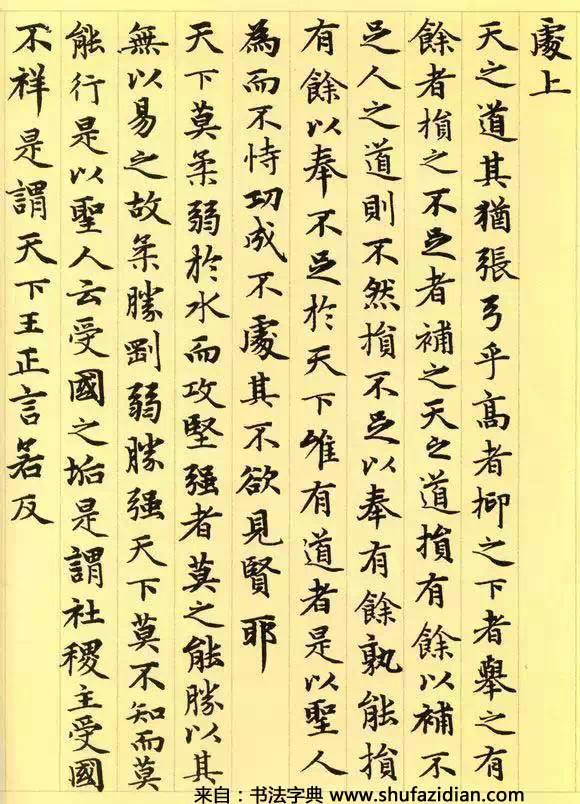 處上
天之道其猶張弓乎高者抑之下者舉之有
餘者損之不足者補之天之道損有餘以補不
足人之道則不然損不足以奉有餘孰能損
有餘以奉不足於天下唯有道者是以聖人
為而不恃功成不處其不欲見賢耶
天下莫柔弱於水而攻堅强者莫之能勝以其
無以易之故柔勝剛弱勝强天下莫不知而莫
能行是以聖人云受國之垢是謂社稷主受國
不祥是謂天下王正言若反
来自：书法字典 www.shufazidian.com